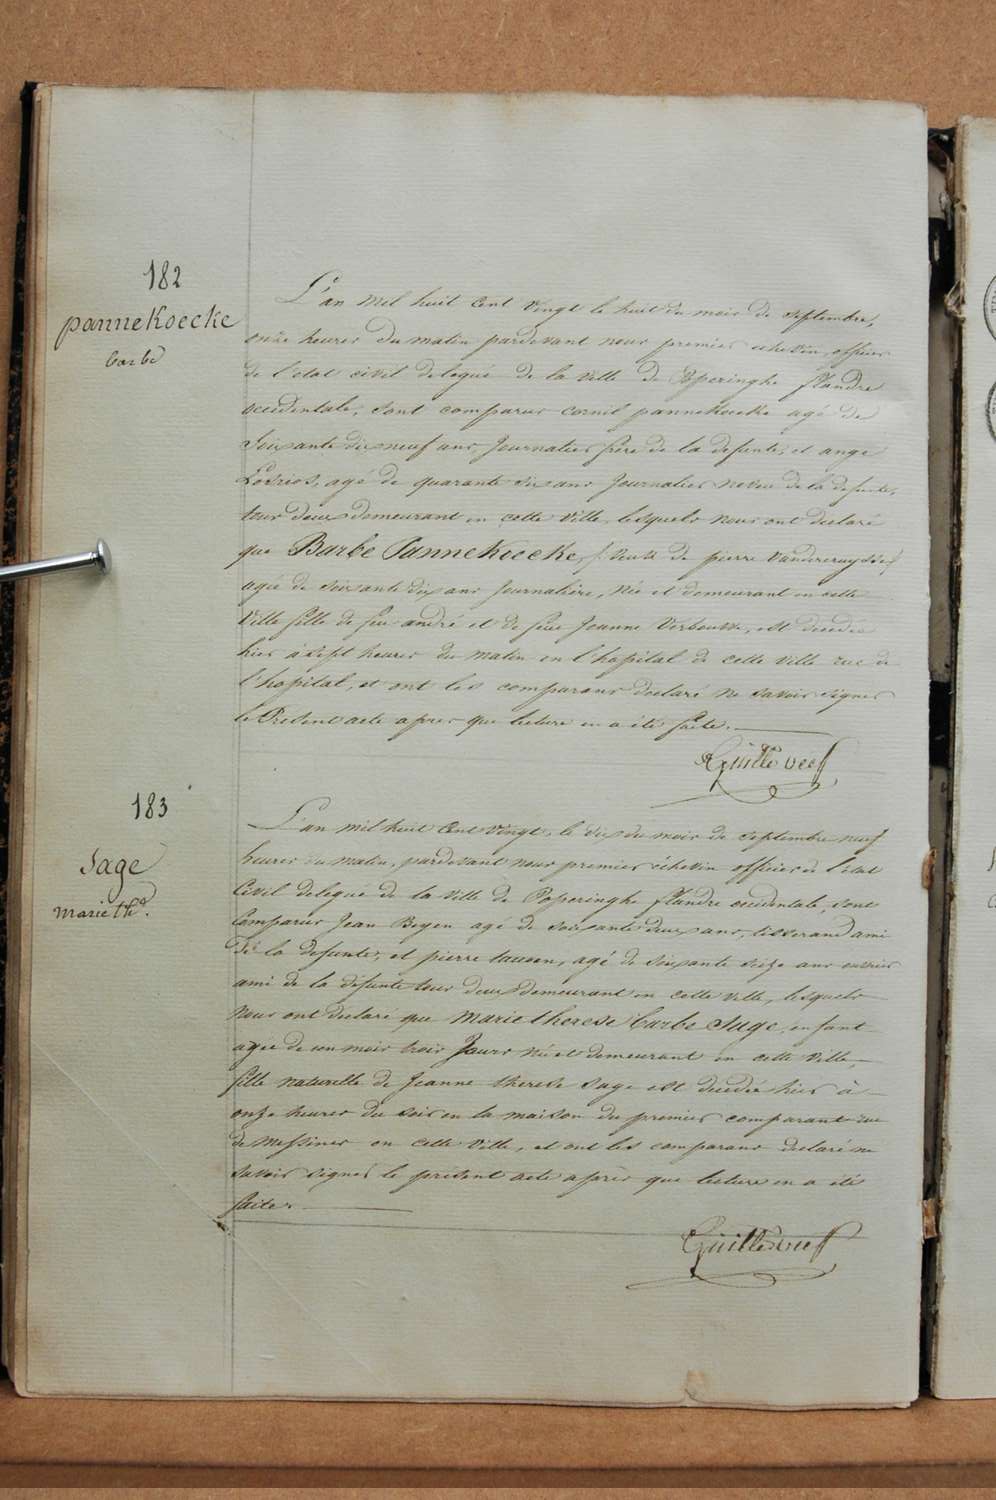 182
pannekoecke
barbe
L'an mil huit cent vingt le huit du mois de septembre,
onze heures du matin pardevant nous premier echevin, officier
de l'etat civil delegué de la ville de Poperinghe flandre
occidentale, sont comparus cornil pannekoecke agé de
soixante dix neuf ans journalier frère de la defunte, et ange
agé de quarante six ans journalier neveu de la defunte,
tous deux demeurant en cette ville, lesquels nous ont declaré
que Barbe Pannekoecke, veuve de pierre Vandecruysse
agée de soixante dix ans journalière, née et demeurant en cette
ville fille de feu andré et de feue Jeanne est decedée
hier à sept heures du matin en l'hopital de cette ville rue de
l'hopital, et ont les comparans declaré ne savoir signer
le Présent acte apres que lecture en a été faite.
183
Sage
marie th.
L'an mil huit Cent vingt, le dix du mois de septembre neuf
heures du matin, pardevant nous premier échevin officier de l'état
Civil delegué de la ville de Poperinghe flandre occidentale, sont
Comparus Jean Beyen agé de soixante deux ans, tisserand ami
de la defunte, et pierre agé de soixante seize ans ouvrier
ami de la défunte tous deux demeurant en cette ville, lesquels
nous ont declaré que marie therese barbe Sage, enfant
agée de un mois trois Jours né et demeurant en cette ville,
fille naturelle de Jeanne therese Sage est decedée hier à
onze heures du soir en la maison du premier comparant rue
de Messines en cette ville, et ont les comparans declaré ne
savoir signer le présent acte après que lecture en a été
faite.